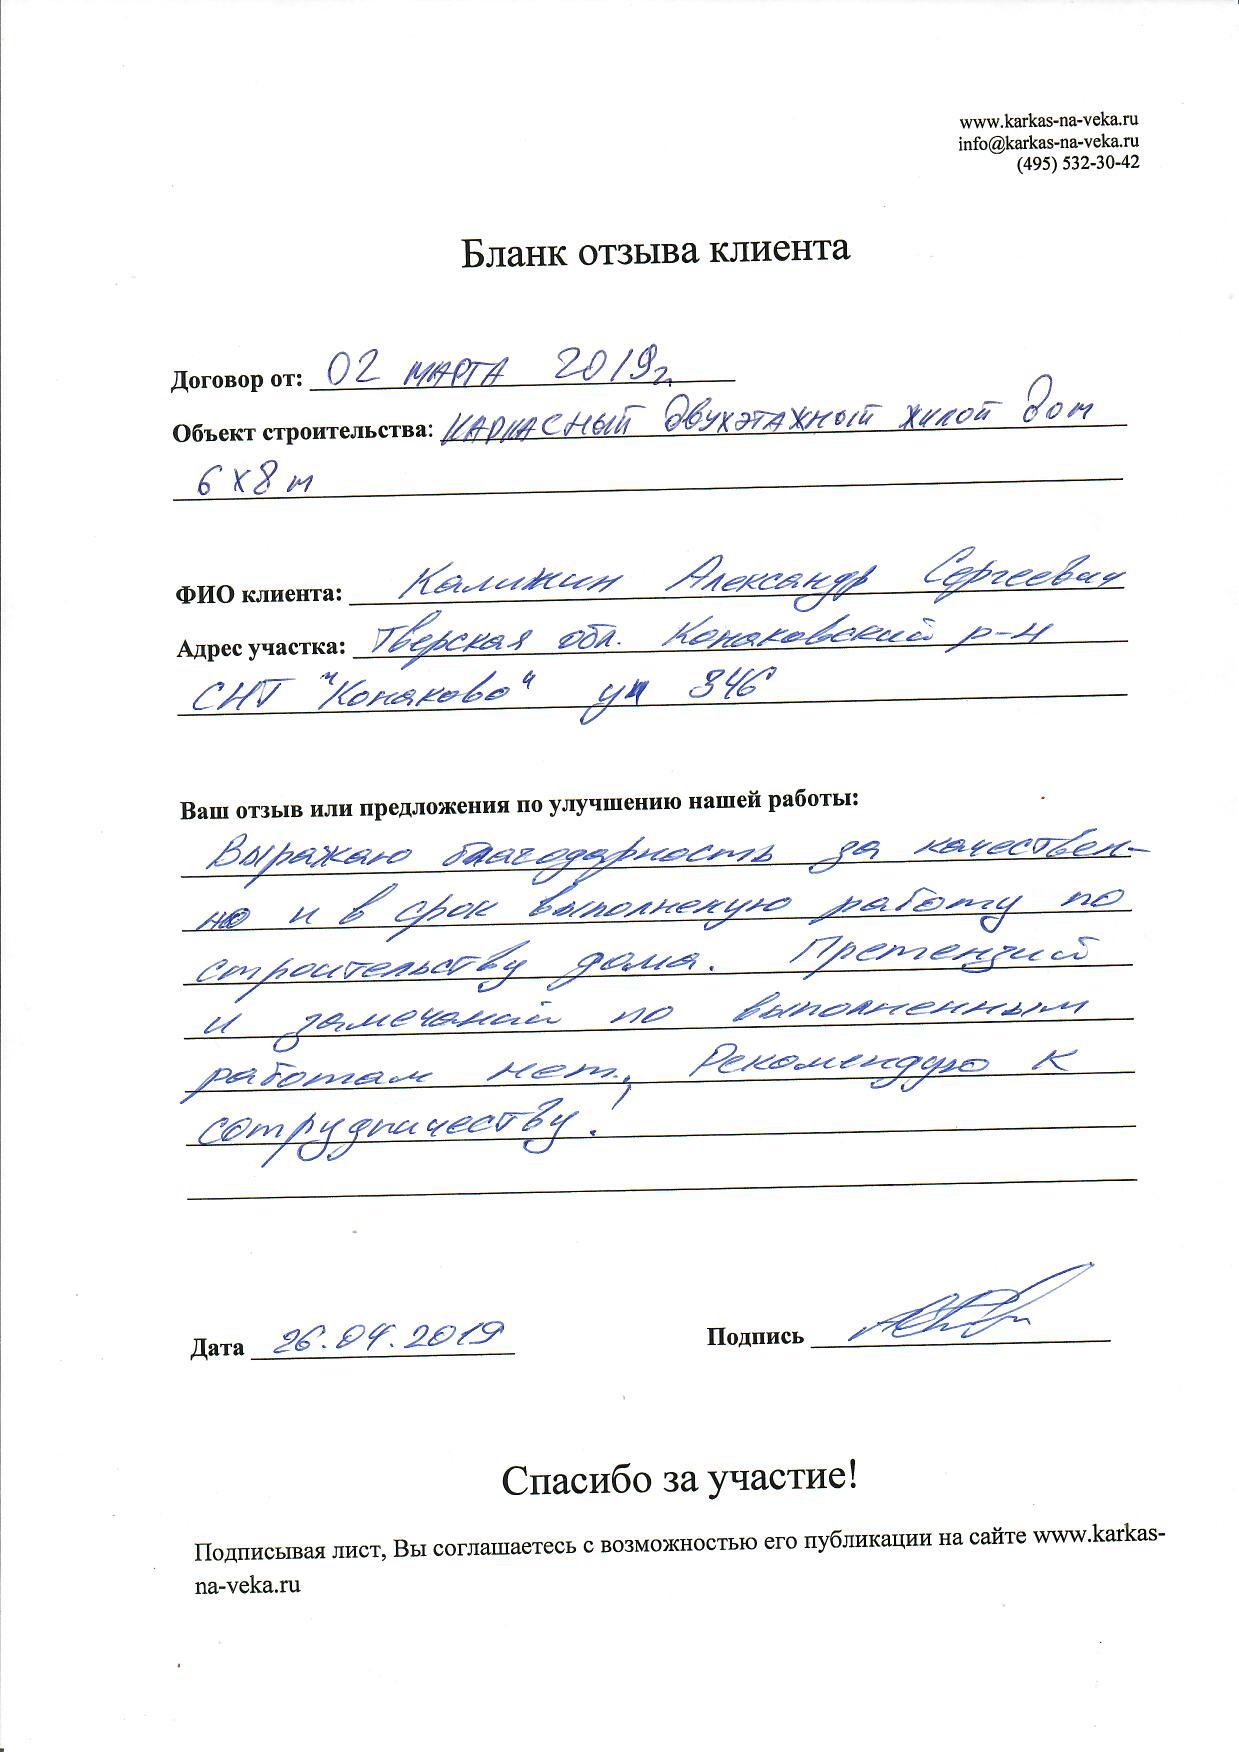 www.karkas-na-veka.ru
info@karkas-na-veka.ru
(495) 532-30-42
Бланк отзыва клиента
Договор от: 02 марта 2019г.
Объект строительства: Каркасный двухэтажный жилой дом
6х8м
ФИО клиента: Калижин Александр Сергеевич
Адрес участка: Тверская обл. Конаковский р-н
СНТ "Конаково" уч 346
Ваш отзыв или предложения по улучшению нашей работы:
Выражаю благодарность за качествен-
но и в срок выполненую работу по
строительству дома. Претензий
и замечаний по выполненным
работам нет. Рекомендую к
сотрудничеству!
Дата 26.04.2019 Подпись
Спасибо за участие!
Подписывая лист, Вы соглашаетесь с возможностью его публикации на сайте www.karkas-
na-veka.ru